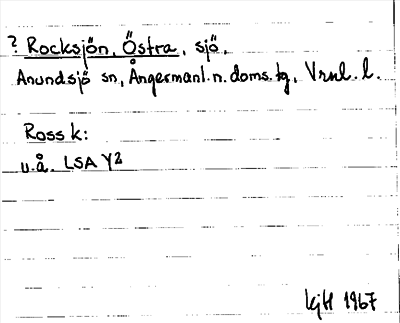 ? Rocksjön, Östra, sjö.
Anundsjö sn, Ångermanl. n. doms. tg, Vrnl. l.
Ross k:
u.å. LSA Y2
kjH 1967